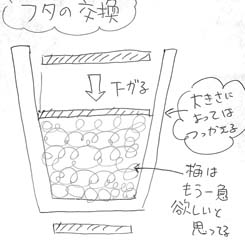 フタの交換
下がる
大きさに
よっては
つっかえる
梅は
もう一息
欲しいと
思ってる